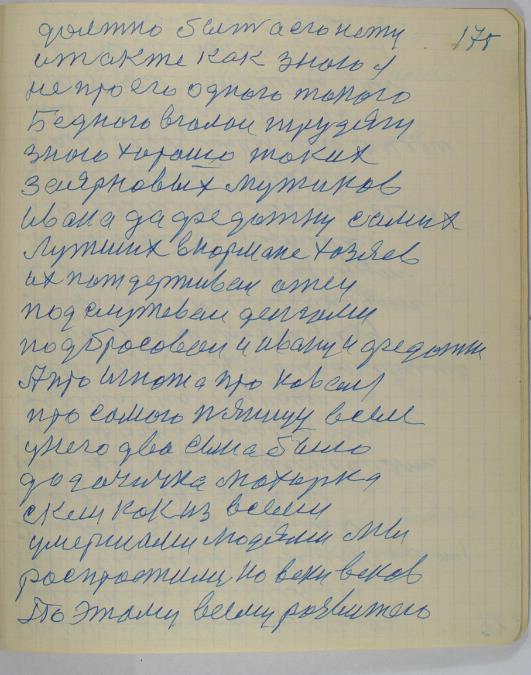 должно быт а его нету 175
итакже как зною я
не про его одного токого
Бедного вголои трудягу
зною хорошо таких
заярновых мужиков
ивана да федотку самих
Лутших внормане хозяев
их поддерживал отец
под служевал денгами
подбросовал и ивану и федотки
А про игната про коваля
про самого пяницу всем
унего два сына было
да дочичка махорка
с кем как из всеми
умершами людями мы
роспростилис на веки веков
По этому всему розвитею